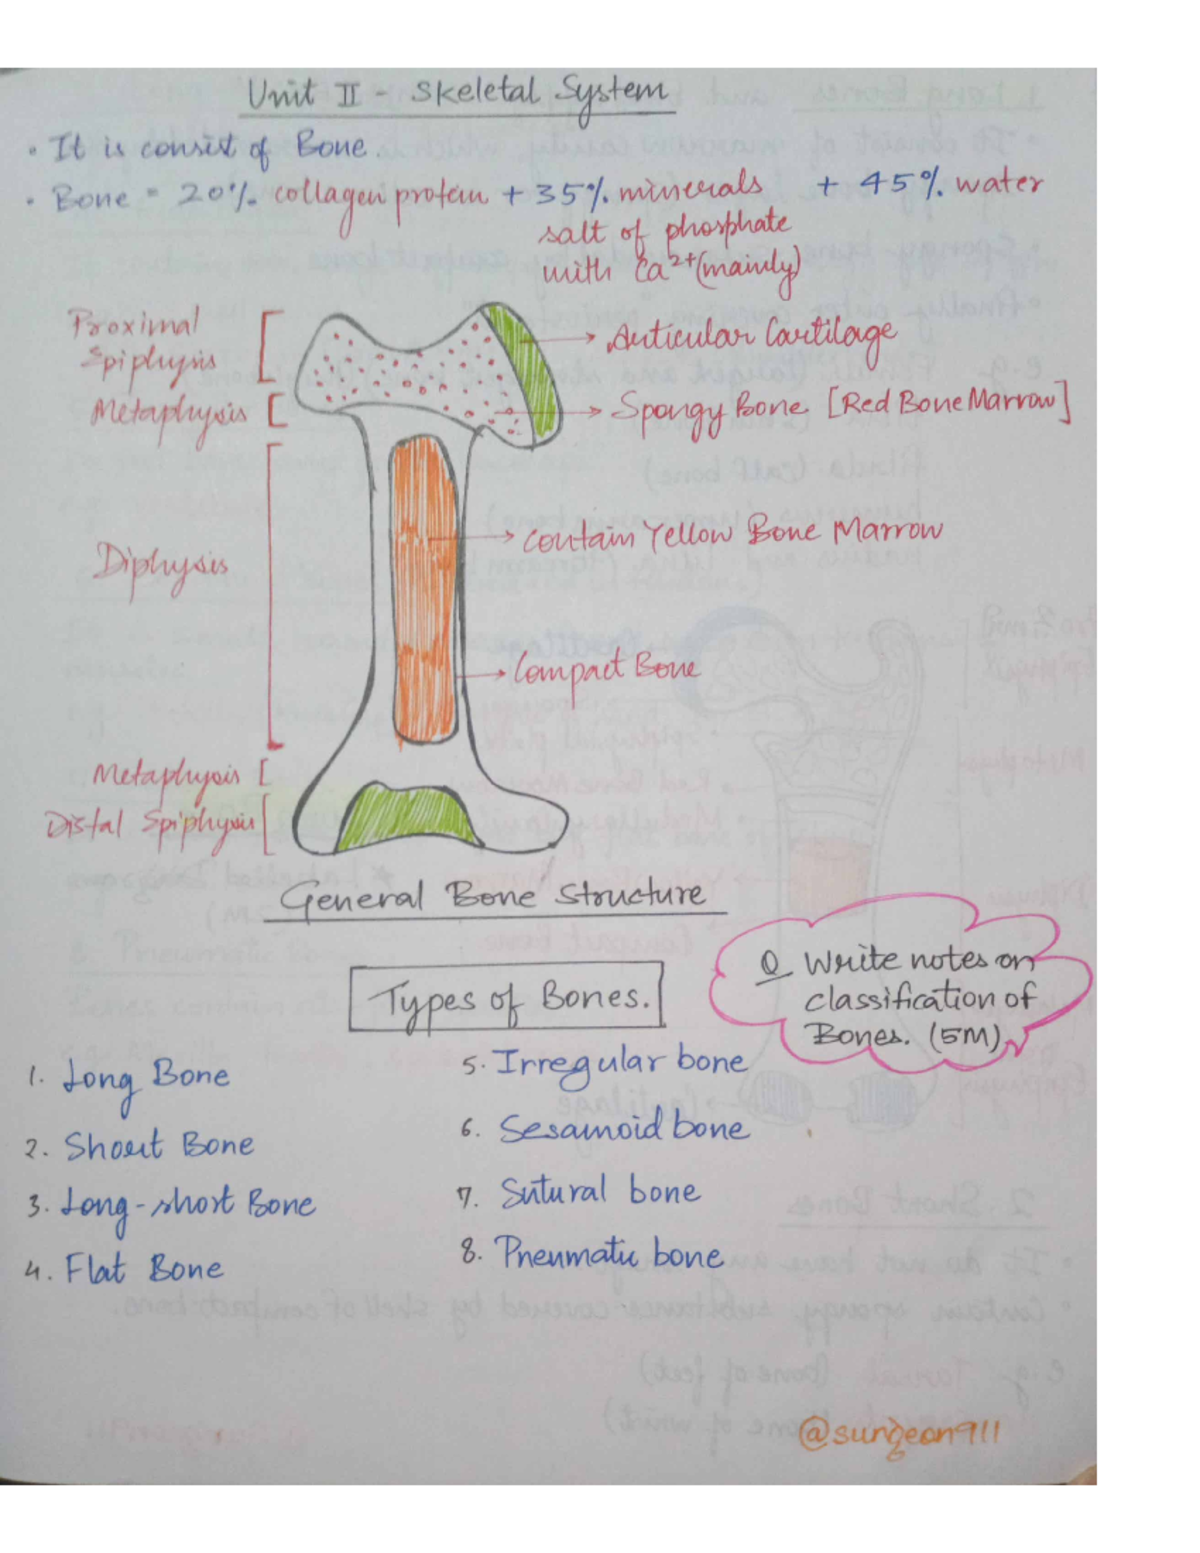 Unit II - Skeletal System
• It is consist of Bone.
• Bone = 20% collagen protein + 35% minerals + 45% water
salt of phosphate
with Ca²⁺(mainly)
Proximal
Epiphysis
Articular Cartilage
Metaphysis
Spongy Bone [Red Bone Marrow]
Contain Yellow Bone Marrow
Diphysis
Compact Bone
Metaphysis
Distal Epiphysis
General Bone Structure
Q Write notes on
classification of
Bones. (5M)
Types of Bones.
1. Long Bone
2. Short Bone
3. Long-short Bone
4. Flat Bone
5. Irregular bone
6. Sesamoid bone
7. Sutural bone
8. Pneumatic bone
@surgeon911